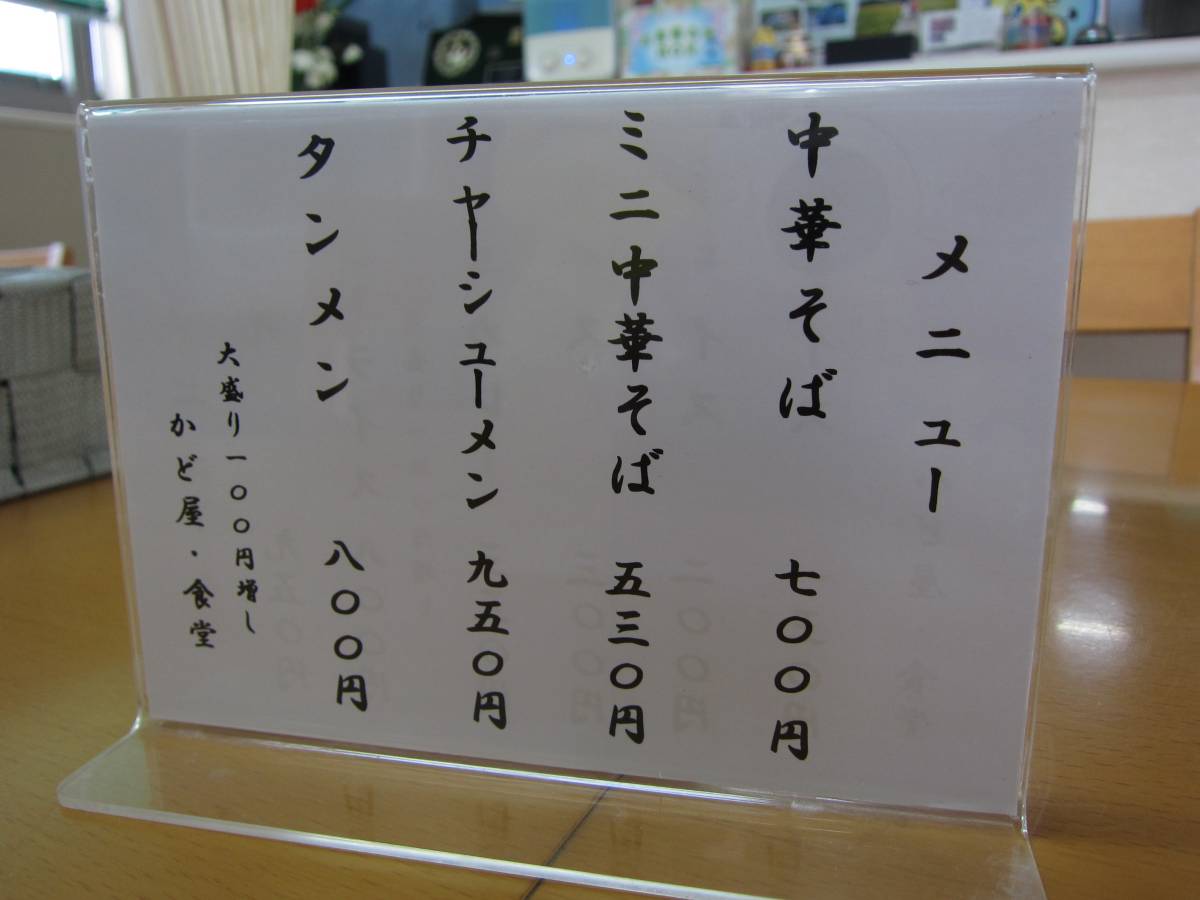 メニュー
中華そば 七〇〇円
ミニ中華そば 五三〇円
チヤーシューメン 九五〇円
タンメン 八〇〇円
大盛り一〇〇円増し
かど屋・食堂